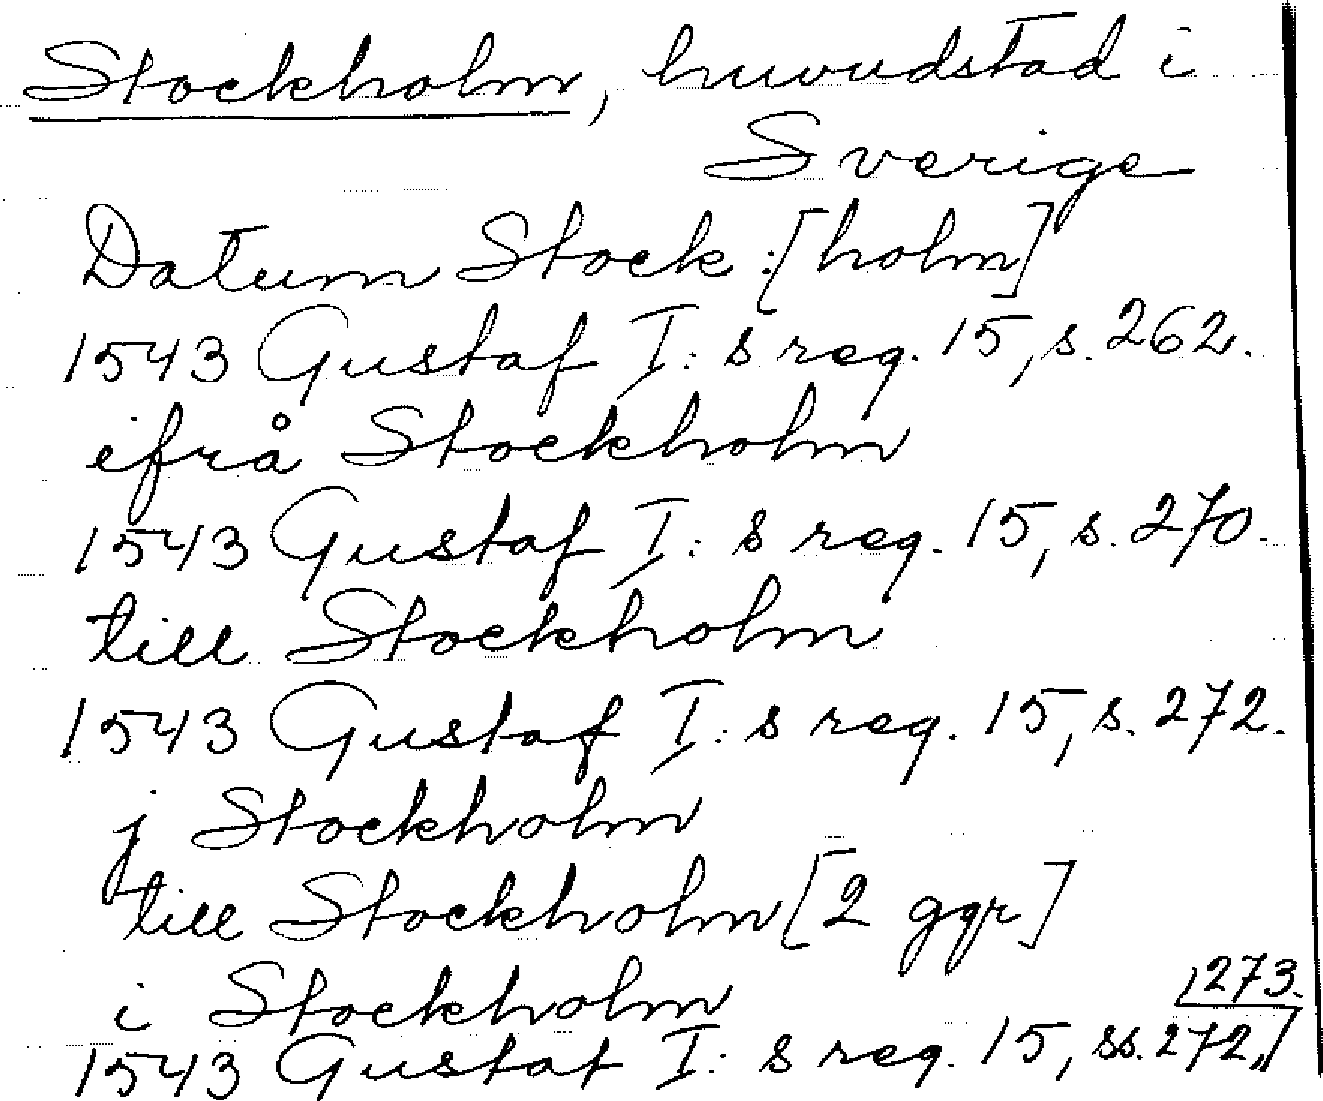 Stockholm, huvudstad i
Sverige
Datum Stock:[holm]
1543 Gustaf I:s reg. 15, s. 262.
ifrå Stockholm
1543 Gustaf I:s reg. 15, s. 270.
till Stockholm
1543 Gustaf I:s reg. 15, s. 272.
j Stockholm
till Stockholm [2 ggr]
i Stockholm
1543 Gustaf I:s reg. 15, ss. 272, 273.